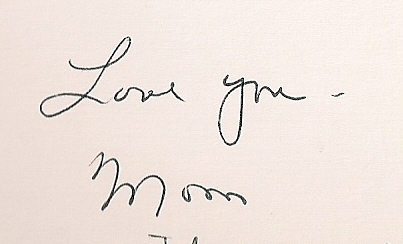 Love you -
Mom